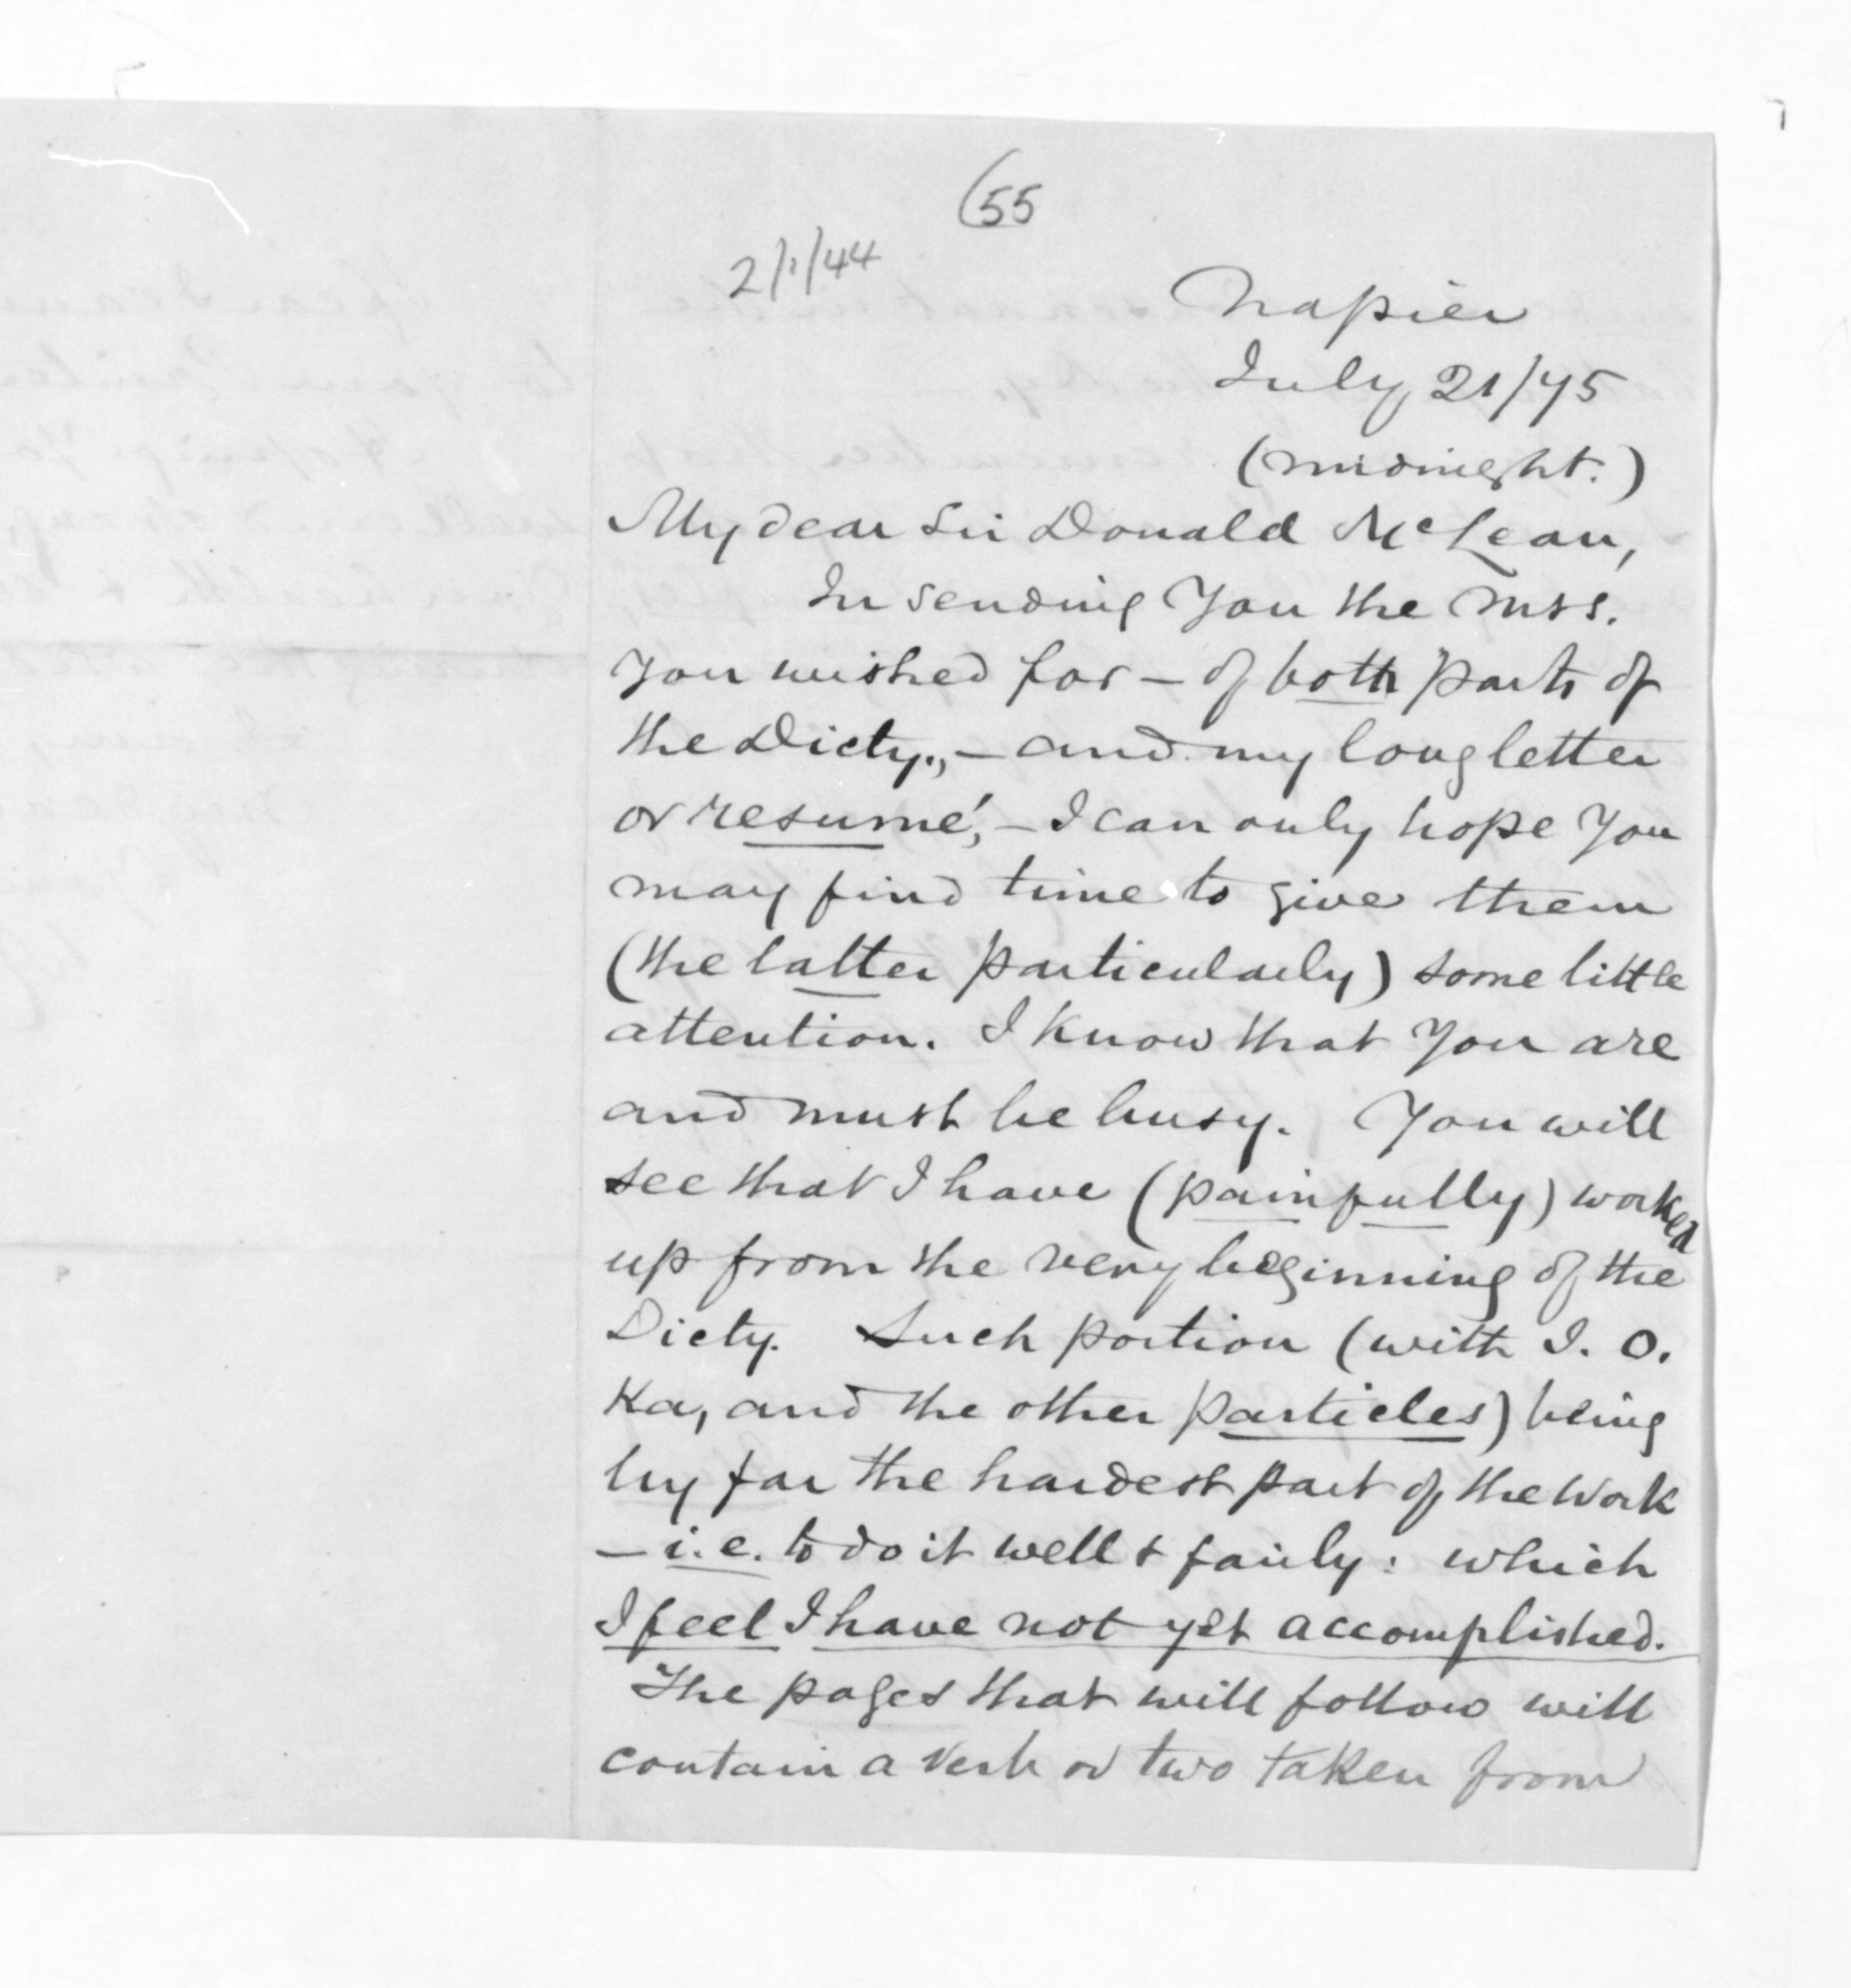 55
2/1/44
Napier
July 21/75
(midnight.)
My dear Sir Donald McLean,
In sending You the mss.
You wished for – of both parts of
the Dicty., – and my long letter
or resumé, – I can only hope You
may find time to give them
(the latter particularly) some little
attention. I know that You are
and must be busy. You will
see that I have (painfully) worked
up from the very beginning of the
Dicty. Such portion (with I. O.
Ka, and the other particles) being
by far the hardest part of the work
– i.e. to do it well & fairly: which
I feel I have not yet accomplished.
The pages that will follow will
contain a verb or two taken from